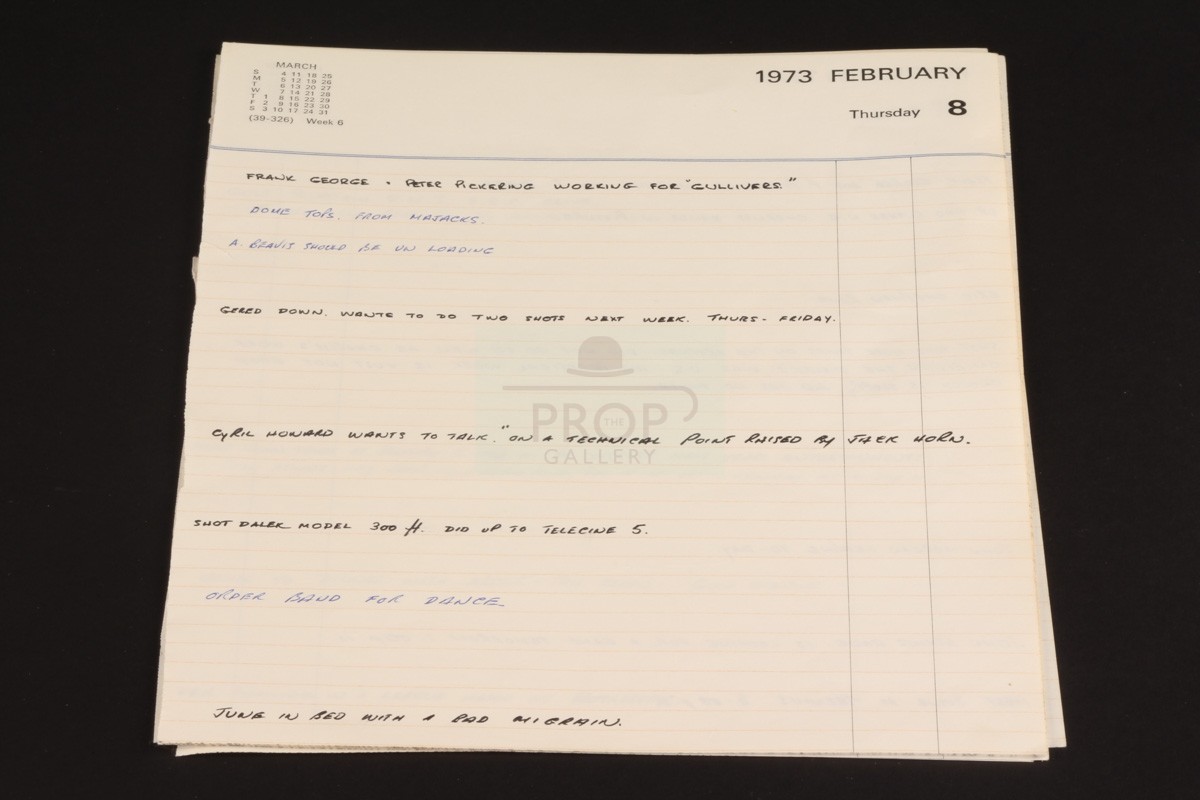 MARCH
S 4 11 18 25
M 5 12 19 26
T 6 13 20 27
W 7 14 21 28
T 1 8 15 22 29
F 2 9 16 23 30
S 3 10 17 24 31
(39-326) Week 6
1973 FEBRUARY
Thursday 8
FRANK GEORGE . PETER PICKERING WORKING FOR "GULLIVERS."
DOME TOPS. FROM MAJACKS.
A. BRAVIS SHOULD BE UN LOADING
GERED DOWN. WANTS TO DO TWO SHOTS NEXT WEEK. THURS - FRIDAY.
CYRIL HOWARD WANTS TO TALK. "ON A TECHNICAL POINT RAISED BY JACK HORN.
SHOT DALEK MODEL 300 ft. DID UP TO TELECINE 5.
ORDER BAND FOR DANCE
JUNE IN BED WITH A BAD MIGRAIN.
THE PROP GALLERY